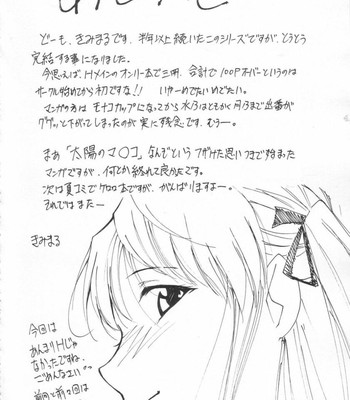 どーも、きみまるです。半年以上続いたこのシリーズですが、とうとう
完結する事になりました。
今思えば、Hメインのオンリー本で三冊、合計で100Pオーバーというのは
サークル始めてから初ですな! いやーめでたいめでたい。
マンガの方は モナコカップになってから
ググッと下がってしまったのが 実に残念です、むうー。
まぁ「太陽のマ○コ」なんぞという フザけた思いつきで始まった
マンガですが、何とか終れて良かったです。
次は夏コミで ケロロ本ですが、がんばりますよー。
それではまたー
きみまる
今回は
あんまりHじゃ
なかったですね、
ごめんなさい
前回と前々回は